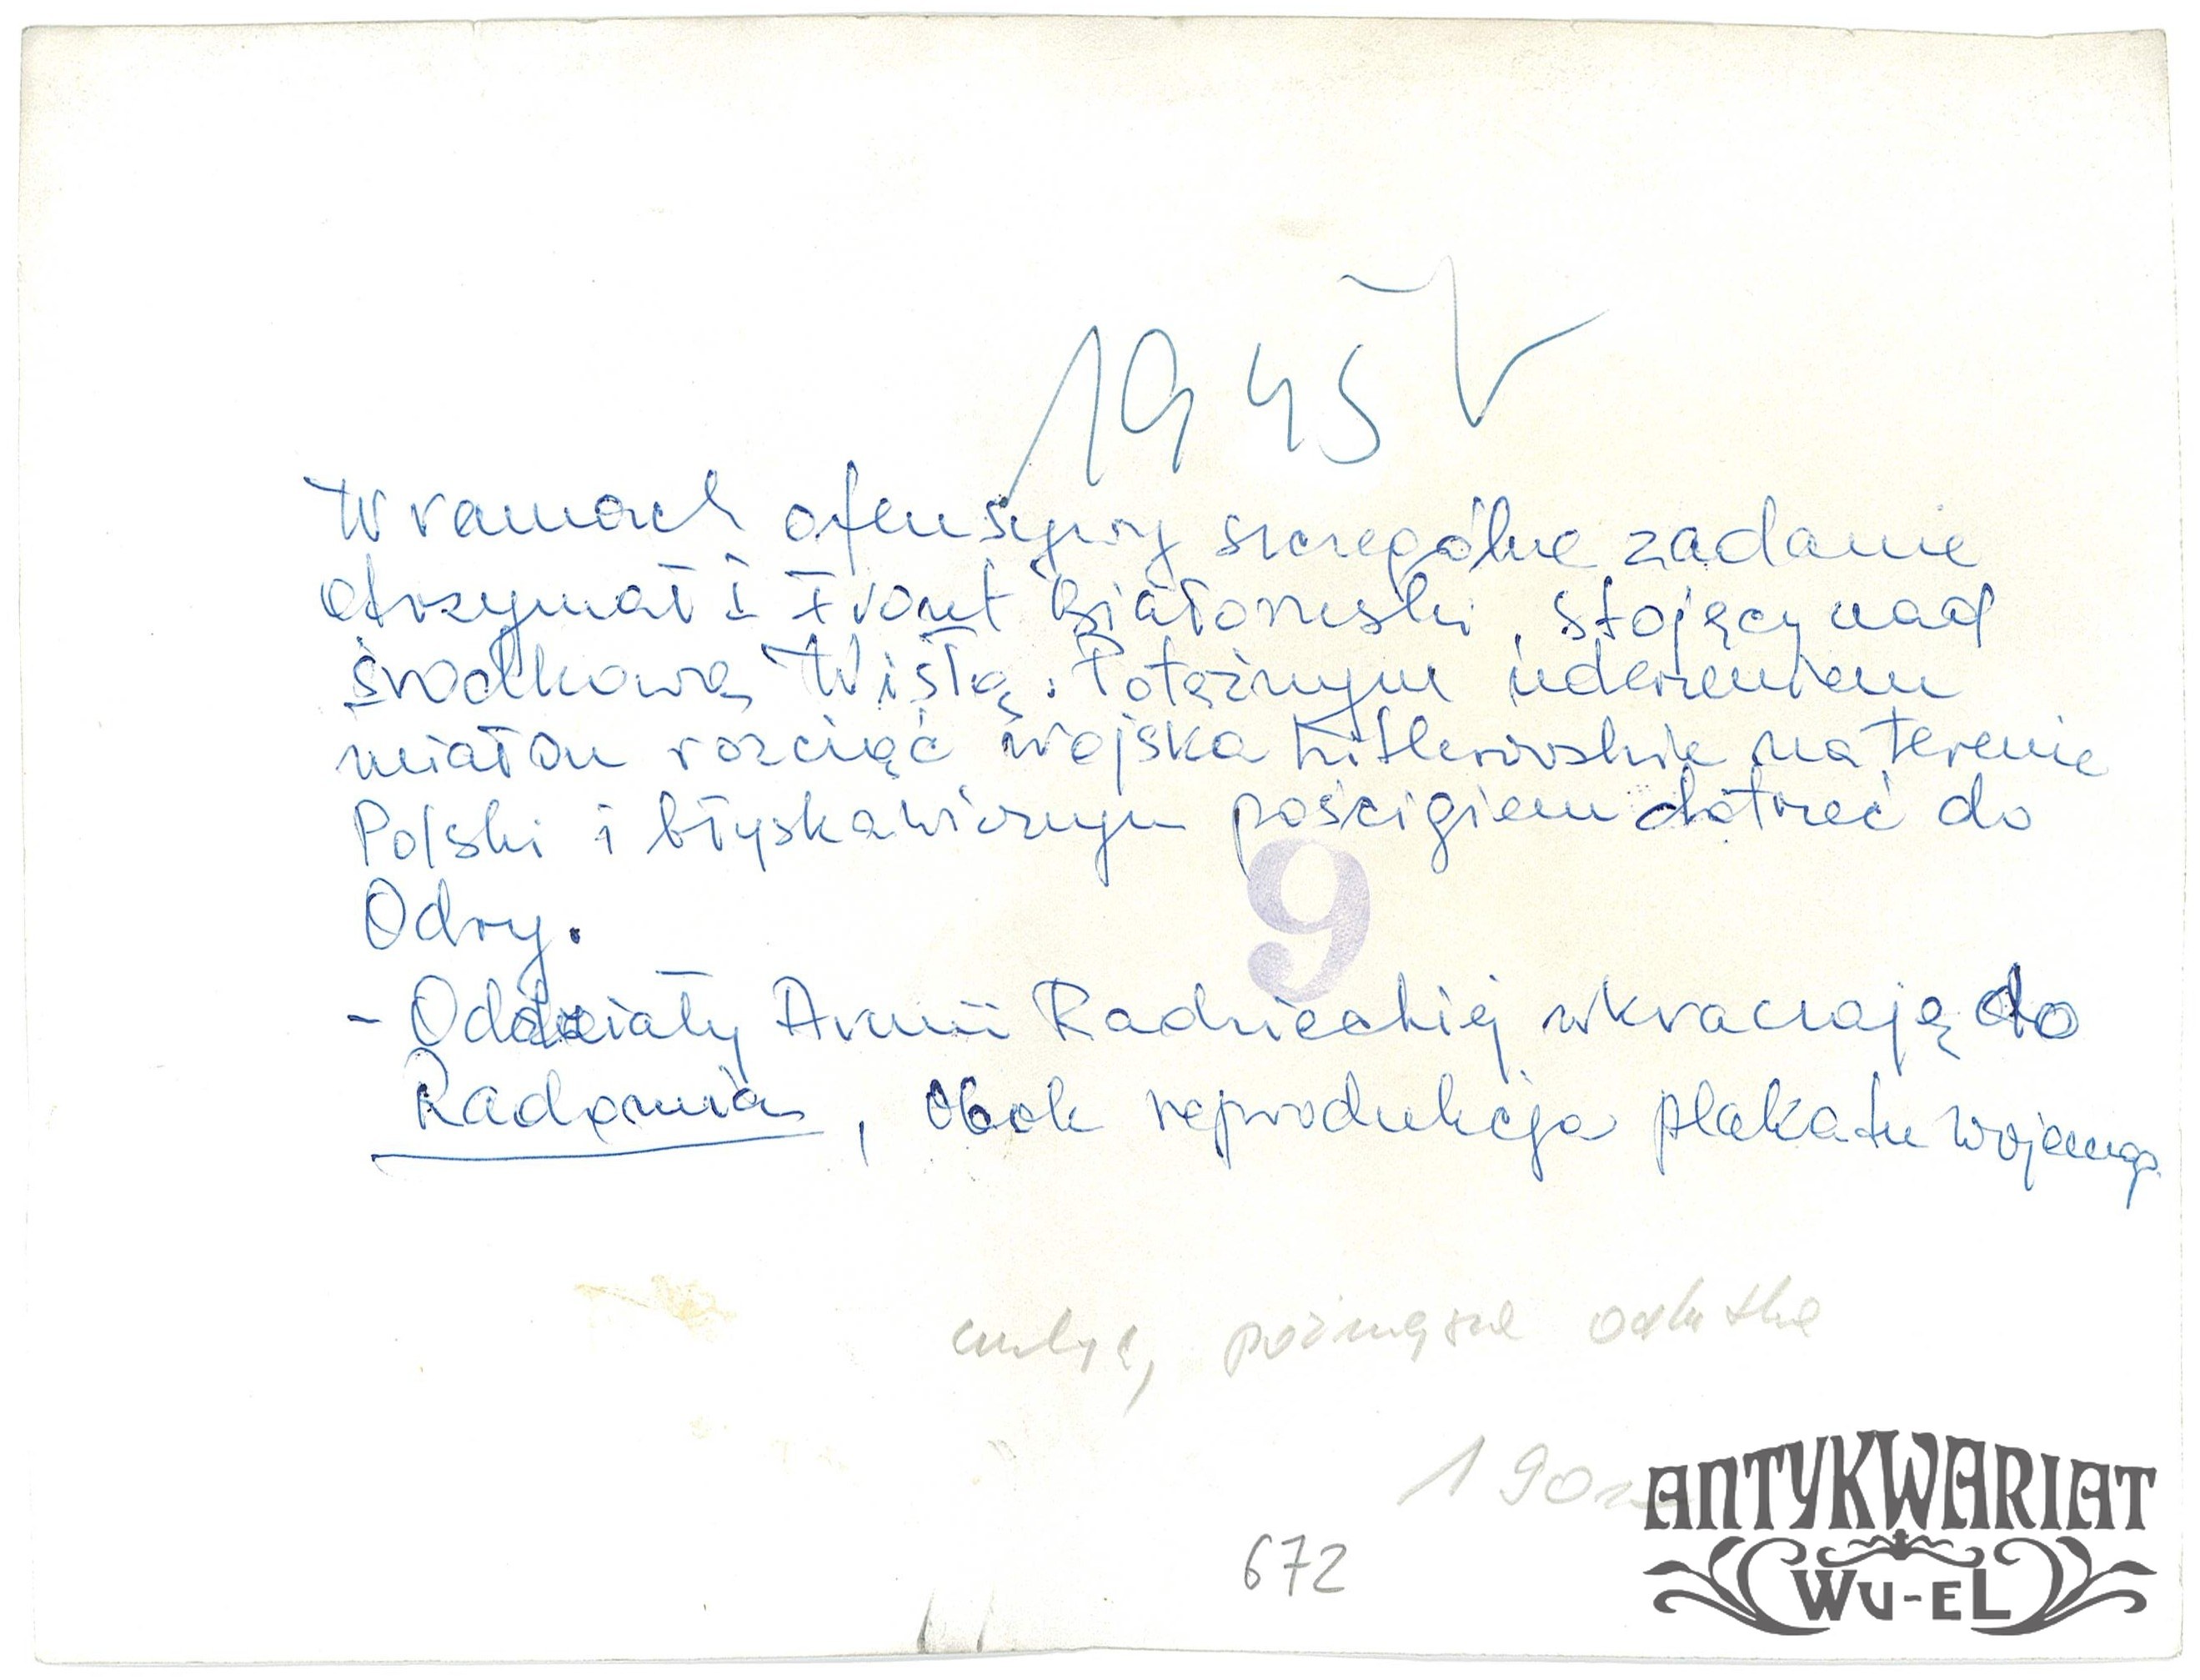 1945
W ramach ofensywy szczególne zadanie
otrzymał I Front Białoruski, stojący nad
środkową Wisłą. Potężnym uderzeniem
miał on rozciąć wojska hitlerowskie na terenie
Polski i błyskawicznym pościgiem dotrzeć do
Odry.
9
- Oddziały Armii Radzieckiej wkraczają do
Radomia, obok reprodukcja plakatu wojennego
późniejsze odbitka
190
672
ANTYKWARIAT
WU-EL